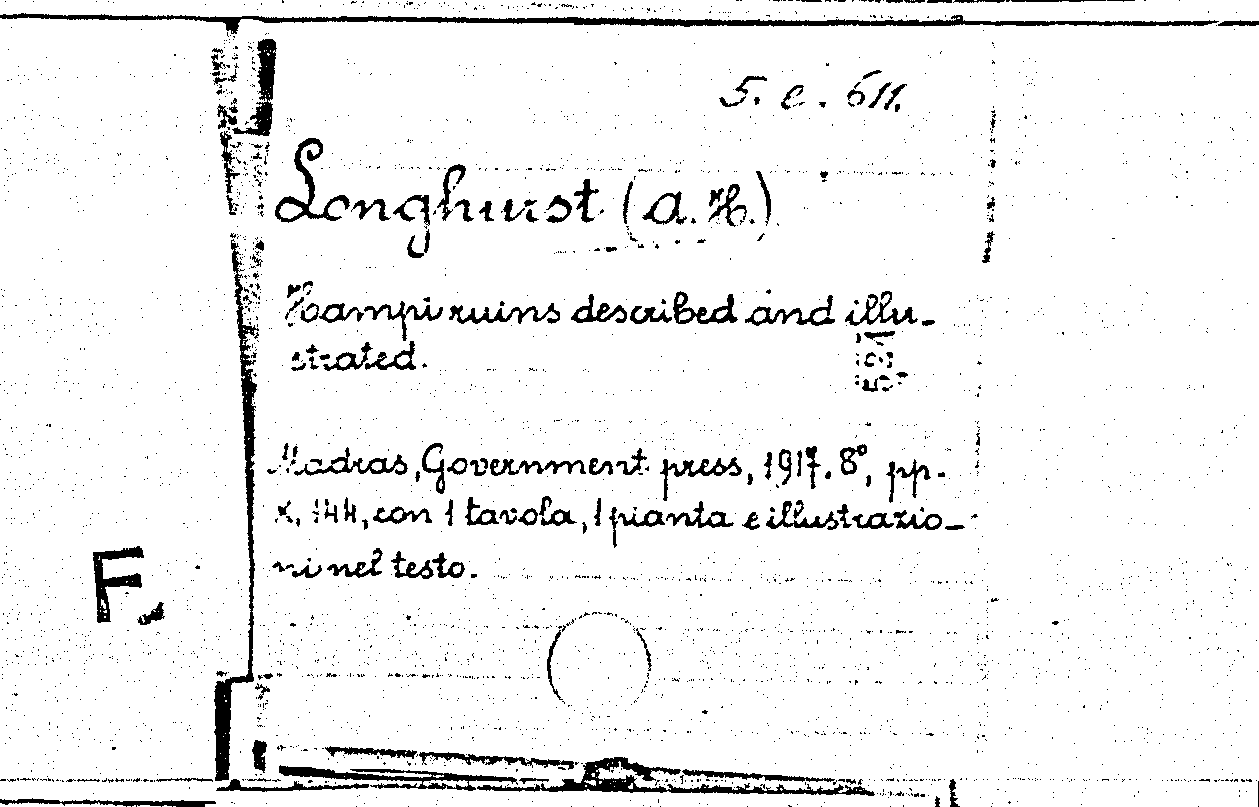 5. e. 611.
Longhurst (A. H.)
Hampi ruins described and illu-
strated.
521
Madras, Government press, 1917. 8°, pp.
X, 144, con 1 tavola, 1 pianta e illustrazio-
ni nel testo.
F.